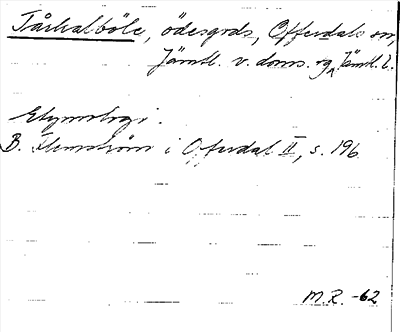 Tårkalböle, ödesgods, Offerdals sn,
Jämtl. v. doms. sg, Jämtl. l.
Etymologi.
B. Flemström i Offerdal II, s. 196
M.R. -62